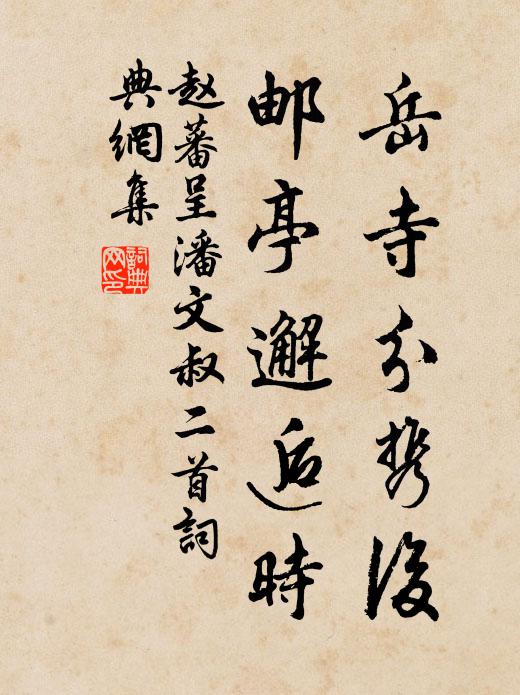 岳寺分携後
邮亭邂逅時
赵蕃呈潘文叔二首詞
典網集
詞典網印